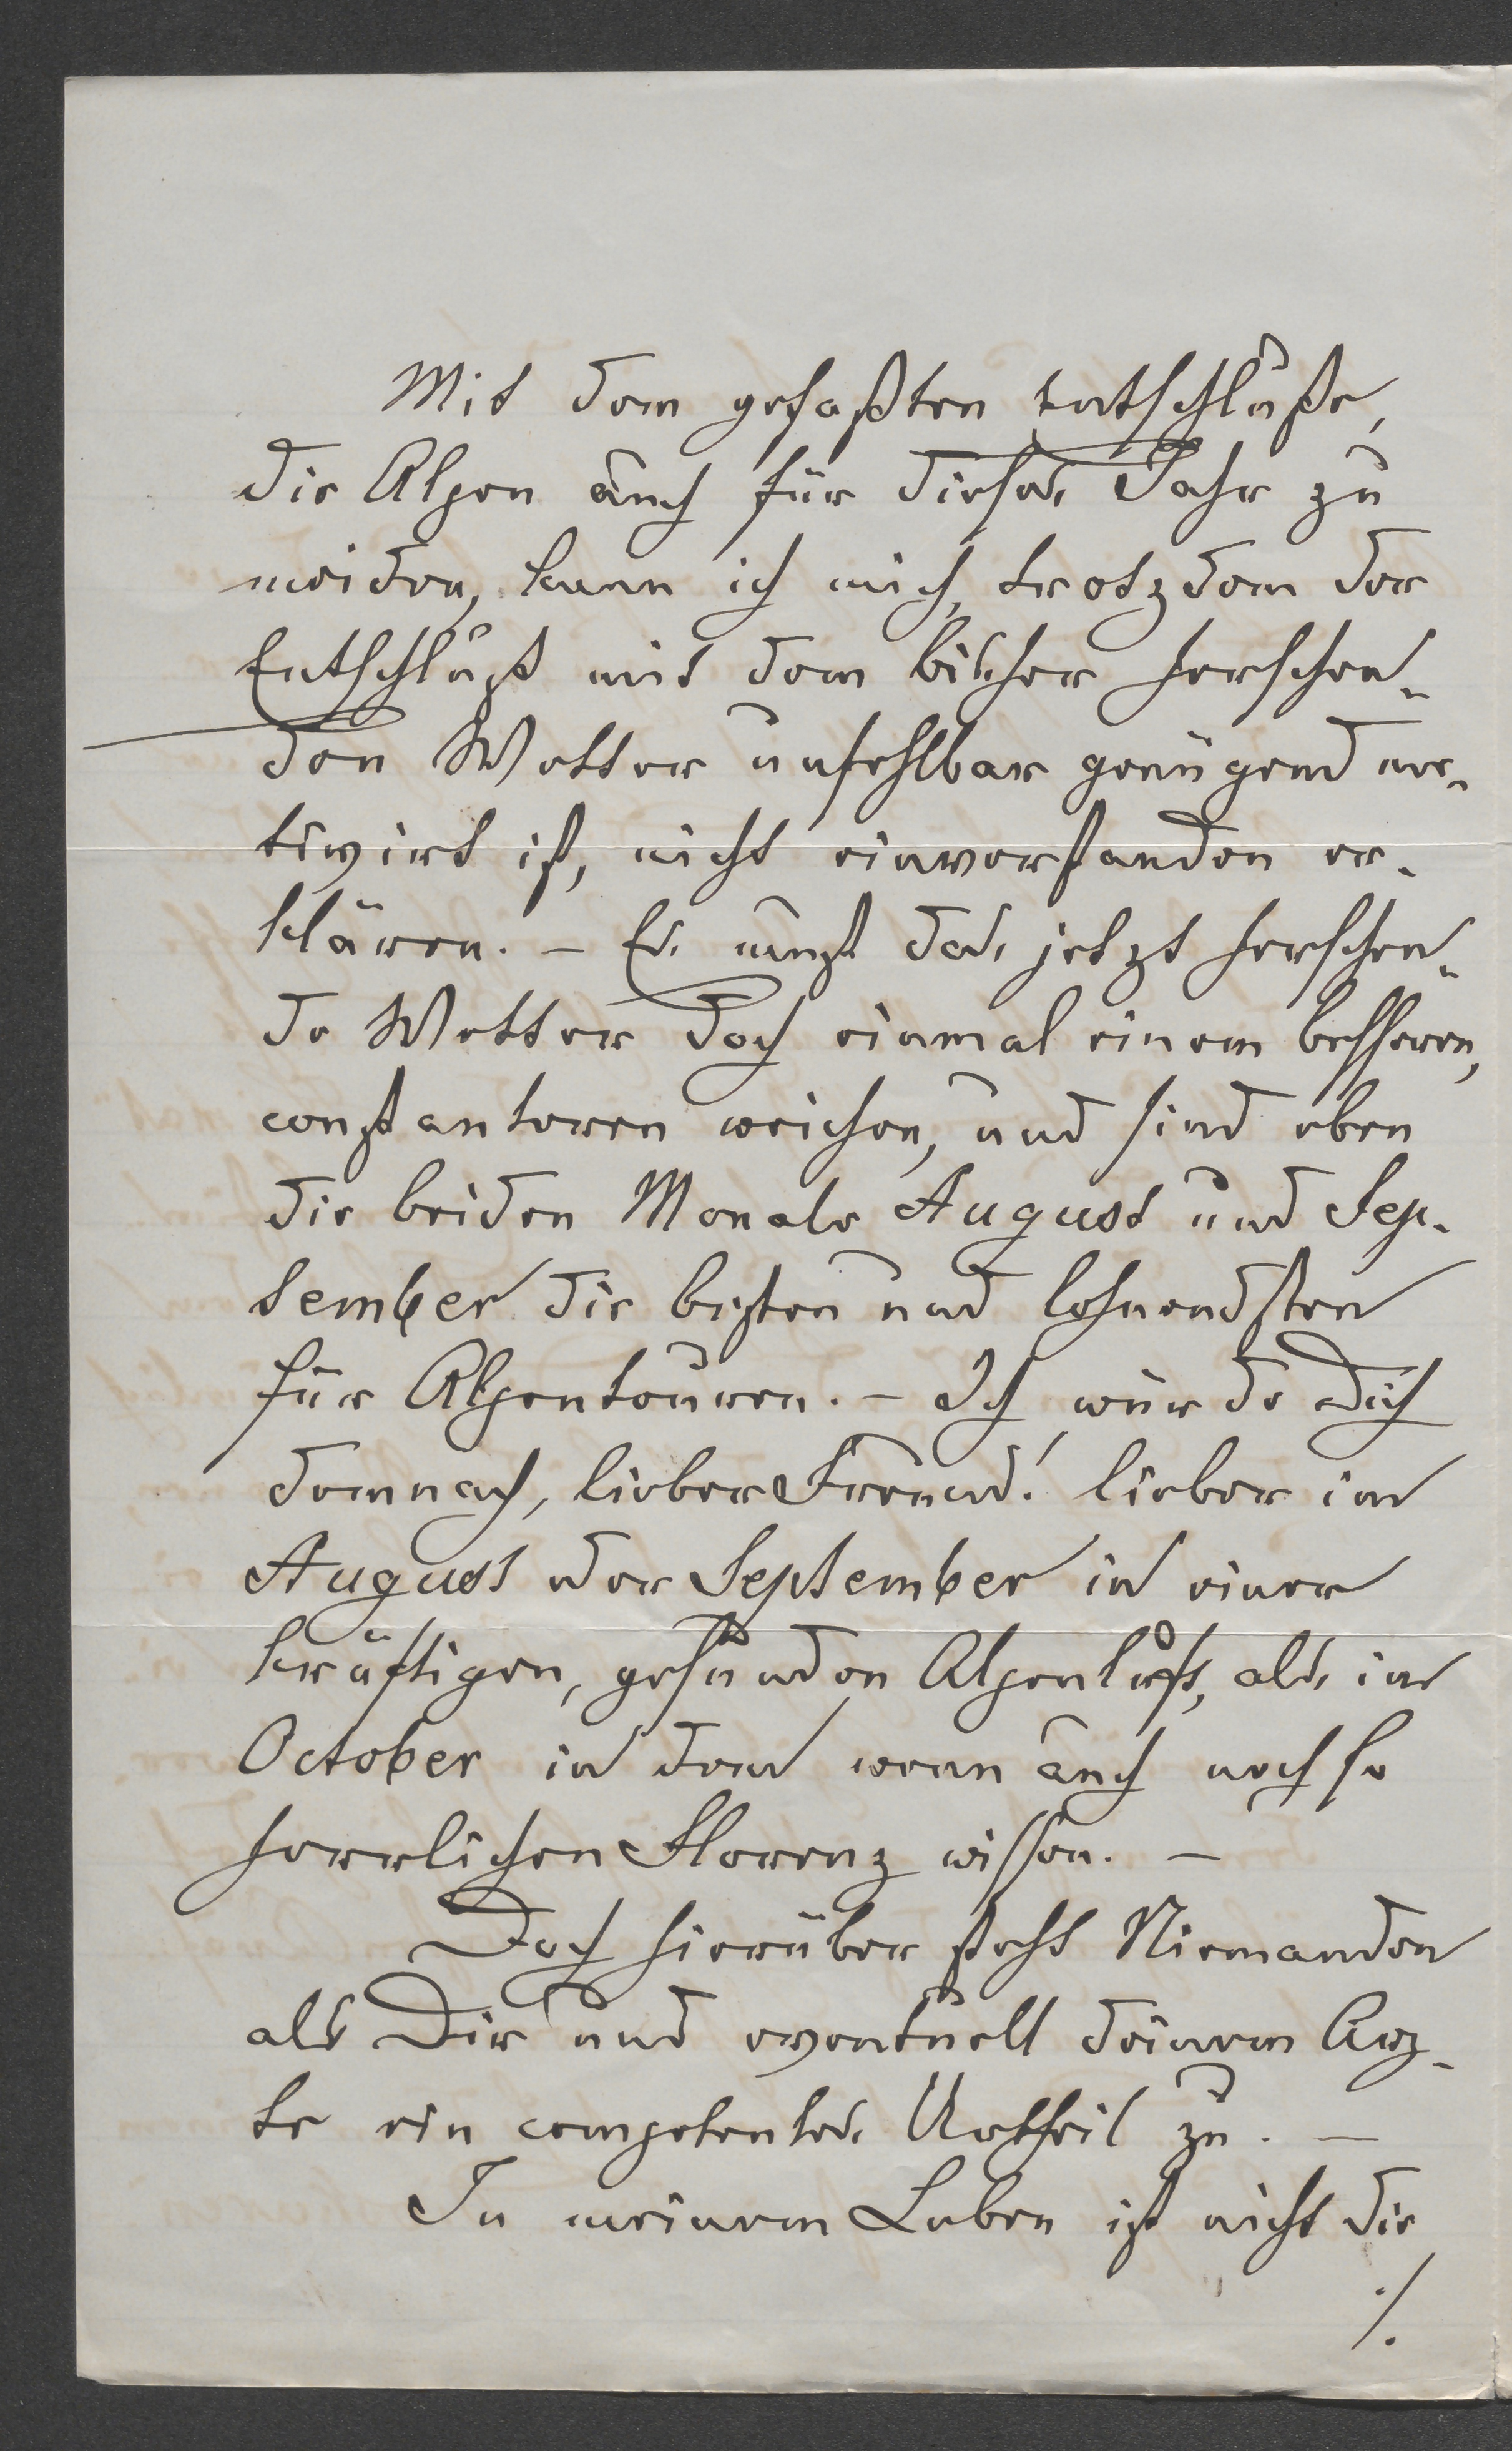 Mit dem gefaßten Entschluße,
die Alpen auch für dieses Jahr zu
meiden, kann ich mich, trotzdem der
Entschluß mit dem bisher herschen-
den Wetter unfehlbar genügend mo-
tivirt ist, nicht einverstanden er-
klären. – Es muß das jetzt herschen-
de Wetter doch einmal einem besseren,
constanteren weichen, und sind eben
die beiden Monate August und Sep-
tember die besten und lohnendsten
für Alpentouren. – Ich würde Dich
demnach, lieber Freund! lieber im
August oder September in einer
kräftigen, gesunden Alpenluft, als im
October in dem wenn auch noch so
herrlichen Florenz wissen. –
Doch hierüber steht Niemanden
als Dir und eventuell deinem Arz-
te ein competentes Urtheil zu. –
In meinem Leben ist nicht die
./.